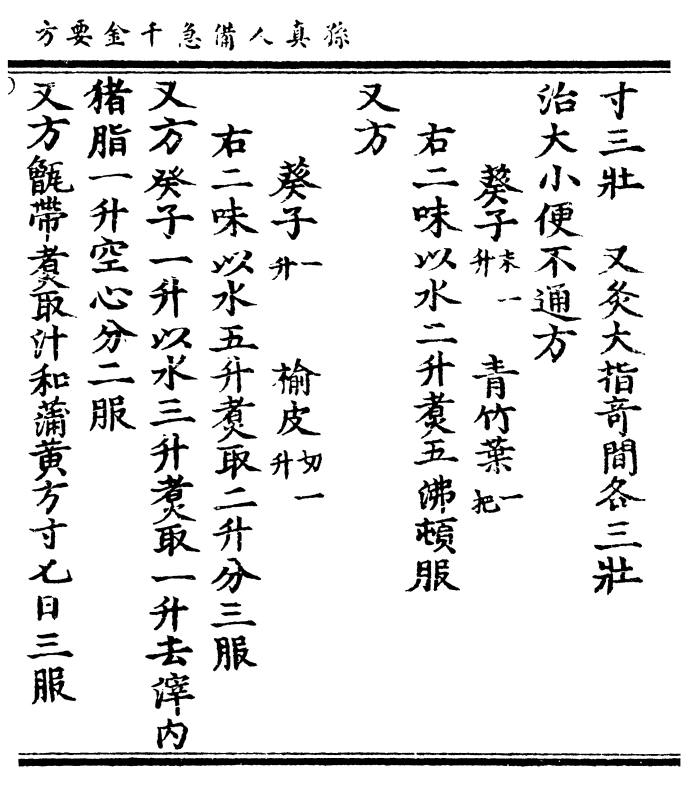 孫真人備急千金要方
寸三壯　又灸大指奇間各三壯
治大小便不通方
葵子末一升　青竹葉一把
右二味以水二升煑五沸頓服
又方
葵子一升　榆皮切一升
右二味以水五升煑取二升分三服
又方癸子一升以水三升煑取一升去滓内
猪脂一升空心分二服
又方甑帶煑取汁和蒲黄方寸匕日三服